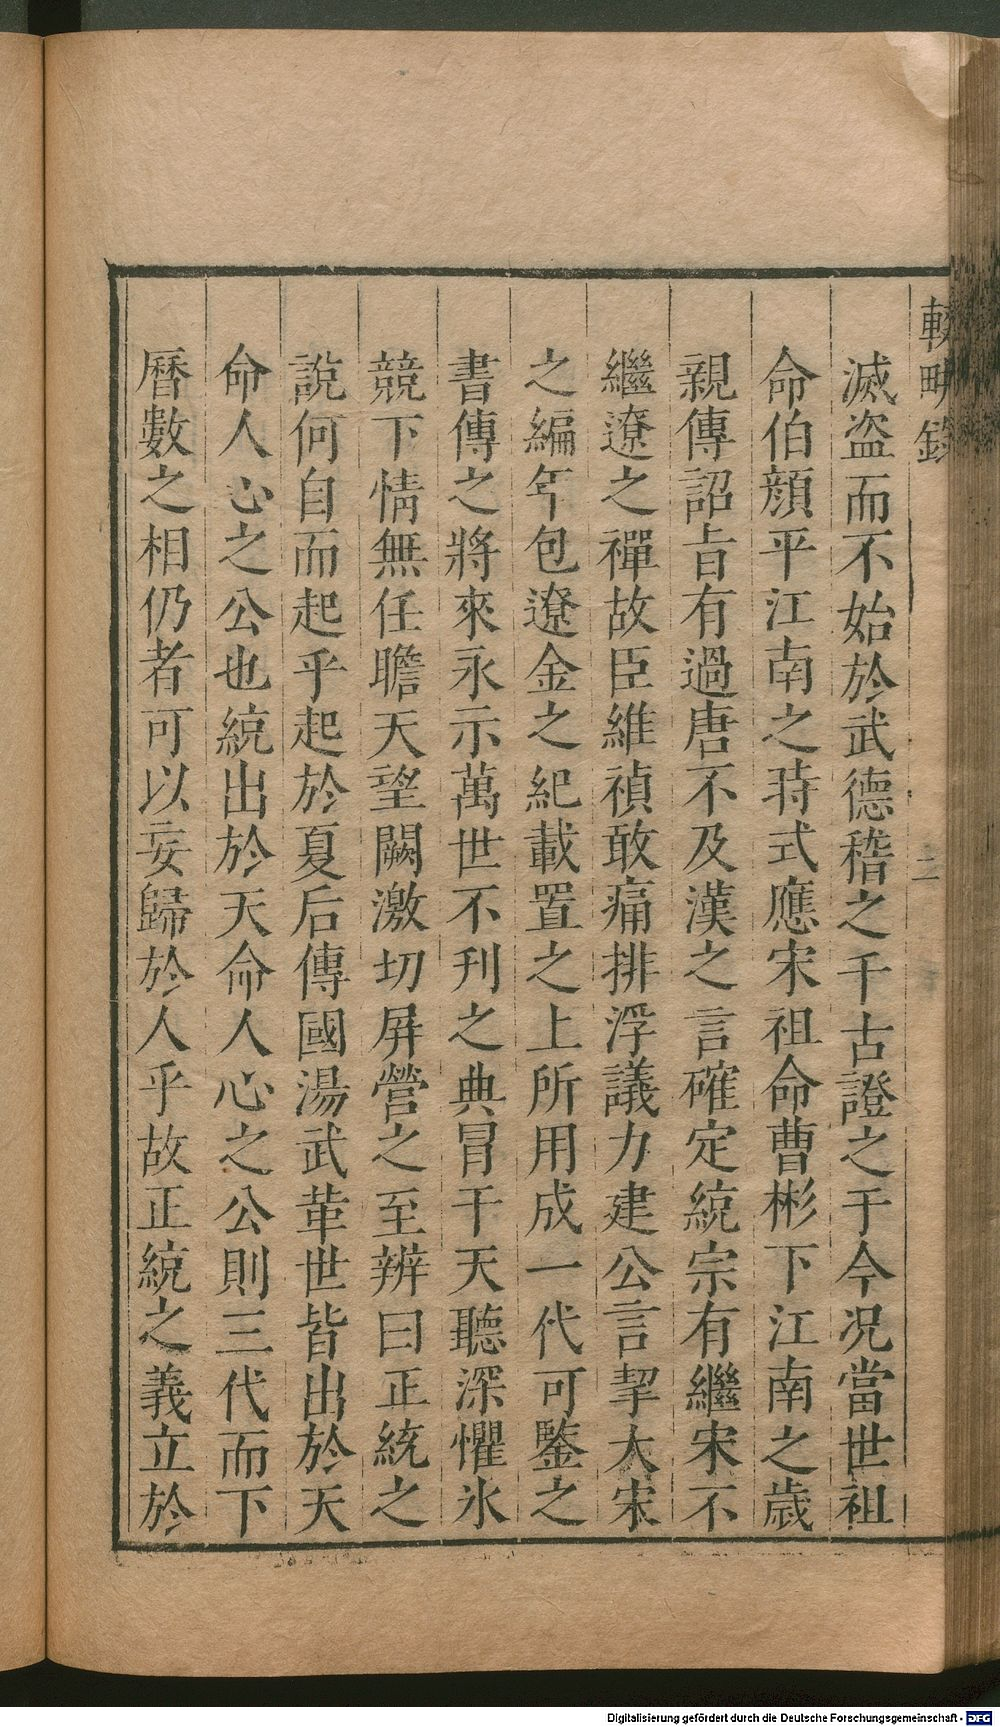 輟畊錄
二
滅盗而不始於武德稽之千古證之于今况當世祖
命伯顔平江南之時式應宋祖命曹彬下江南之歲
親傳詔旨有過唐不及漢之言確定統宗有繼宋不
繼遼之禪故臣維禎敢痛排浮議力建公言挈大宋
之編年包遼金之紀載置之上所用成一代可鑒之
書傳之將來永示萬世不刋之典冒干天聽深懼氷
競下情無任瞻天望闕激切屏營之至辨曰正統之
說何自而起乎起於夏后傳國湯武革世皆出於天
命人心之公也統出於天命人心之公則三代而下
曆數之相仍者可以妄歸於人乎故正統之義立於
Digitalisierung gefördert durch die Deutsche Forschungsgemeinschaft - DFG